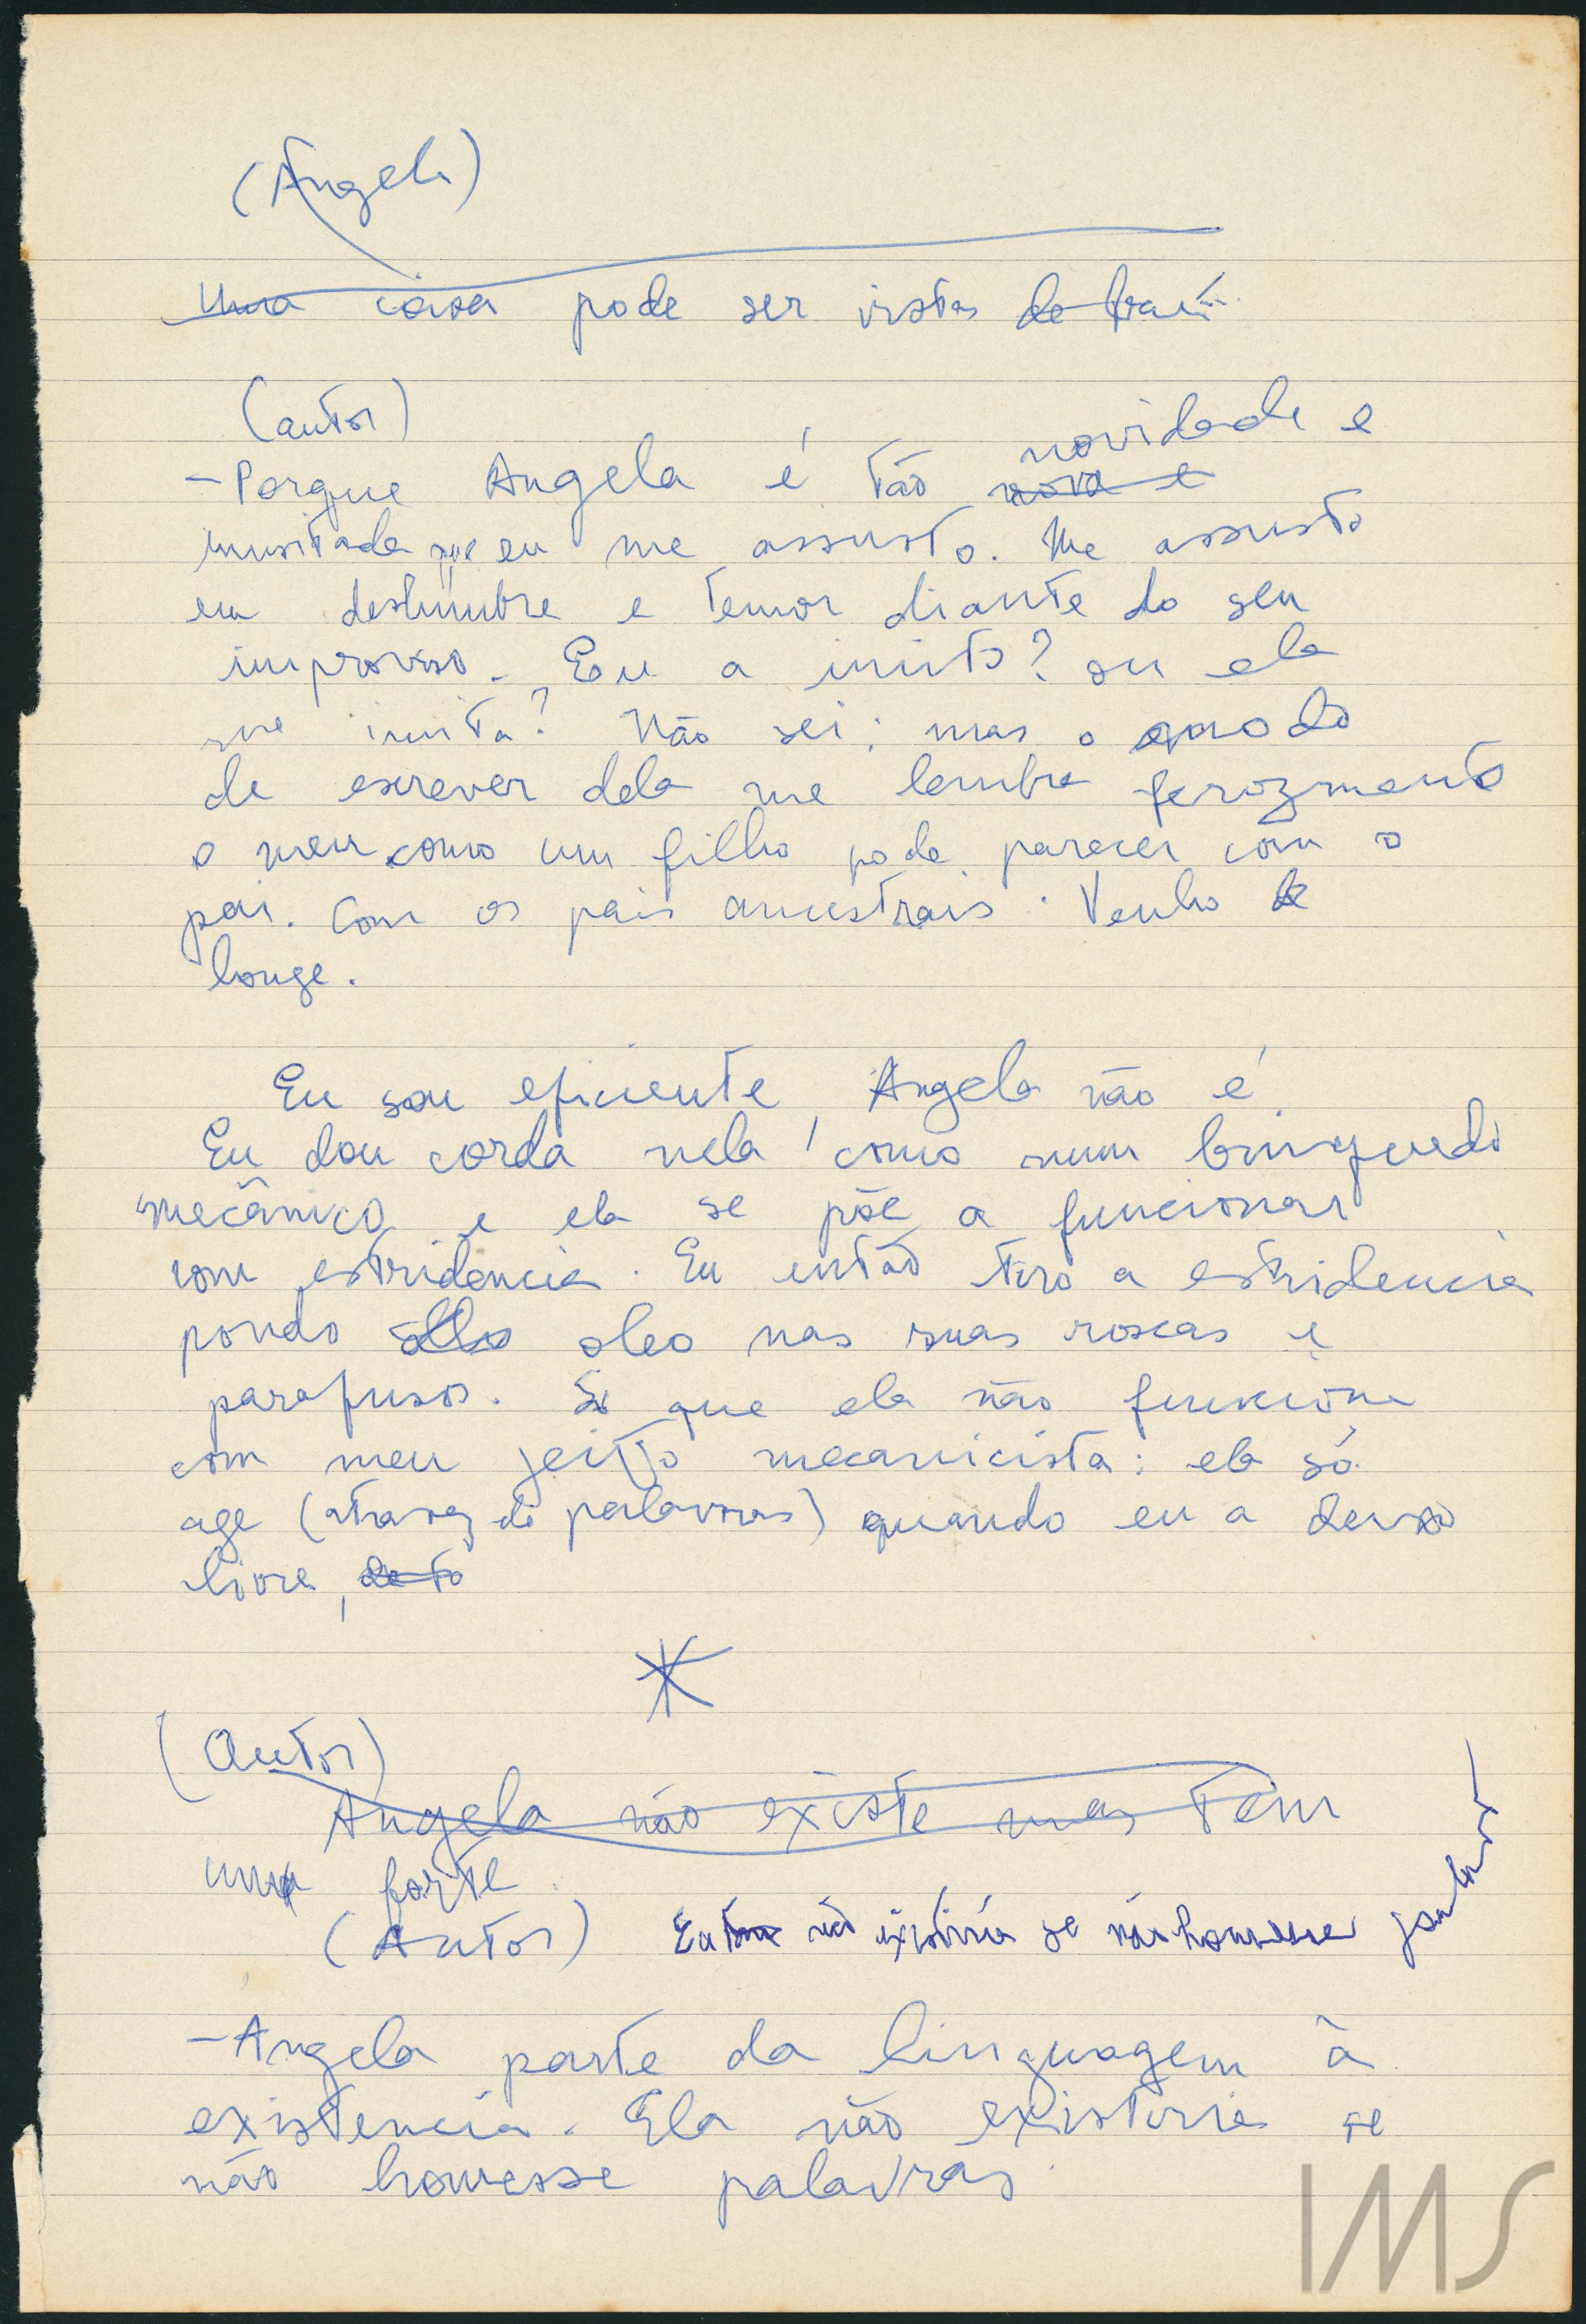 (Angela)
Uma coisa pode ser vista de
(autor)
novidade e
– Porque Angela é tão nova e
inusitada que eu me assusto. Me assusto
em deslumbre e temor diante do seu
improviso. Eu a imito? ou ela
me imita? Não sei: mas o modo
de escrever dela me lembra ferozmente
o meu como um filho pode parecer com o
pai. Com os pais ancestrais. Venho de
longe.
Eu sou eficiente, Angela não é.
Eu dou corda nela como num brinquedo
mecânico e ela se põe a funcionar
com estridencia. Eu então tiro a estridencia
pondo oleo nas suas roscas e
parafusos. que ela não funciona
com meu jeito mecanicista: ela só
age (atravez de palavras) quando eu a deixo
livre,
*
(Autor)
Angela não existe mas tem
uma forte
(Autor) Eu não existiria se não houvesse palavras
– Angela parte da linguagem à
existencia. Ela não existiria se
não houvesse palavras.
IMS